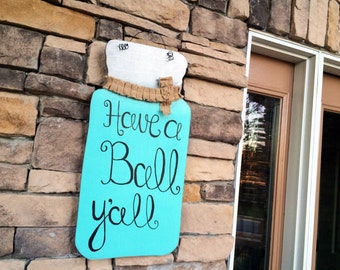 Have a
Ball
y'all